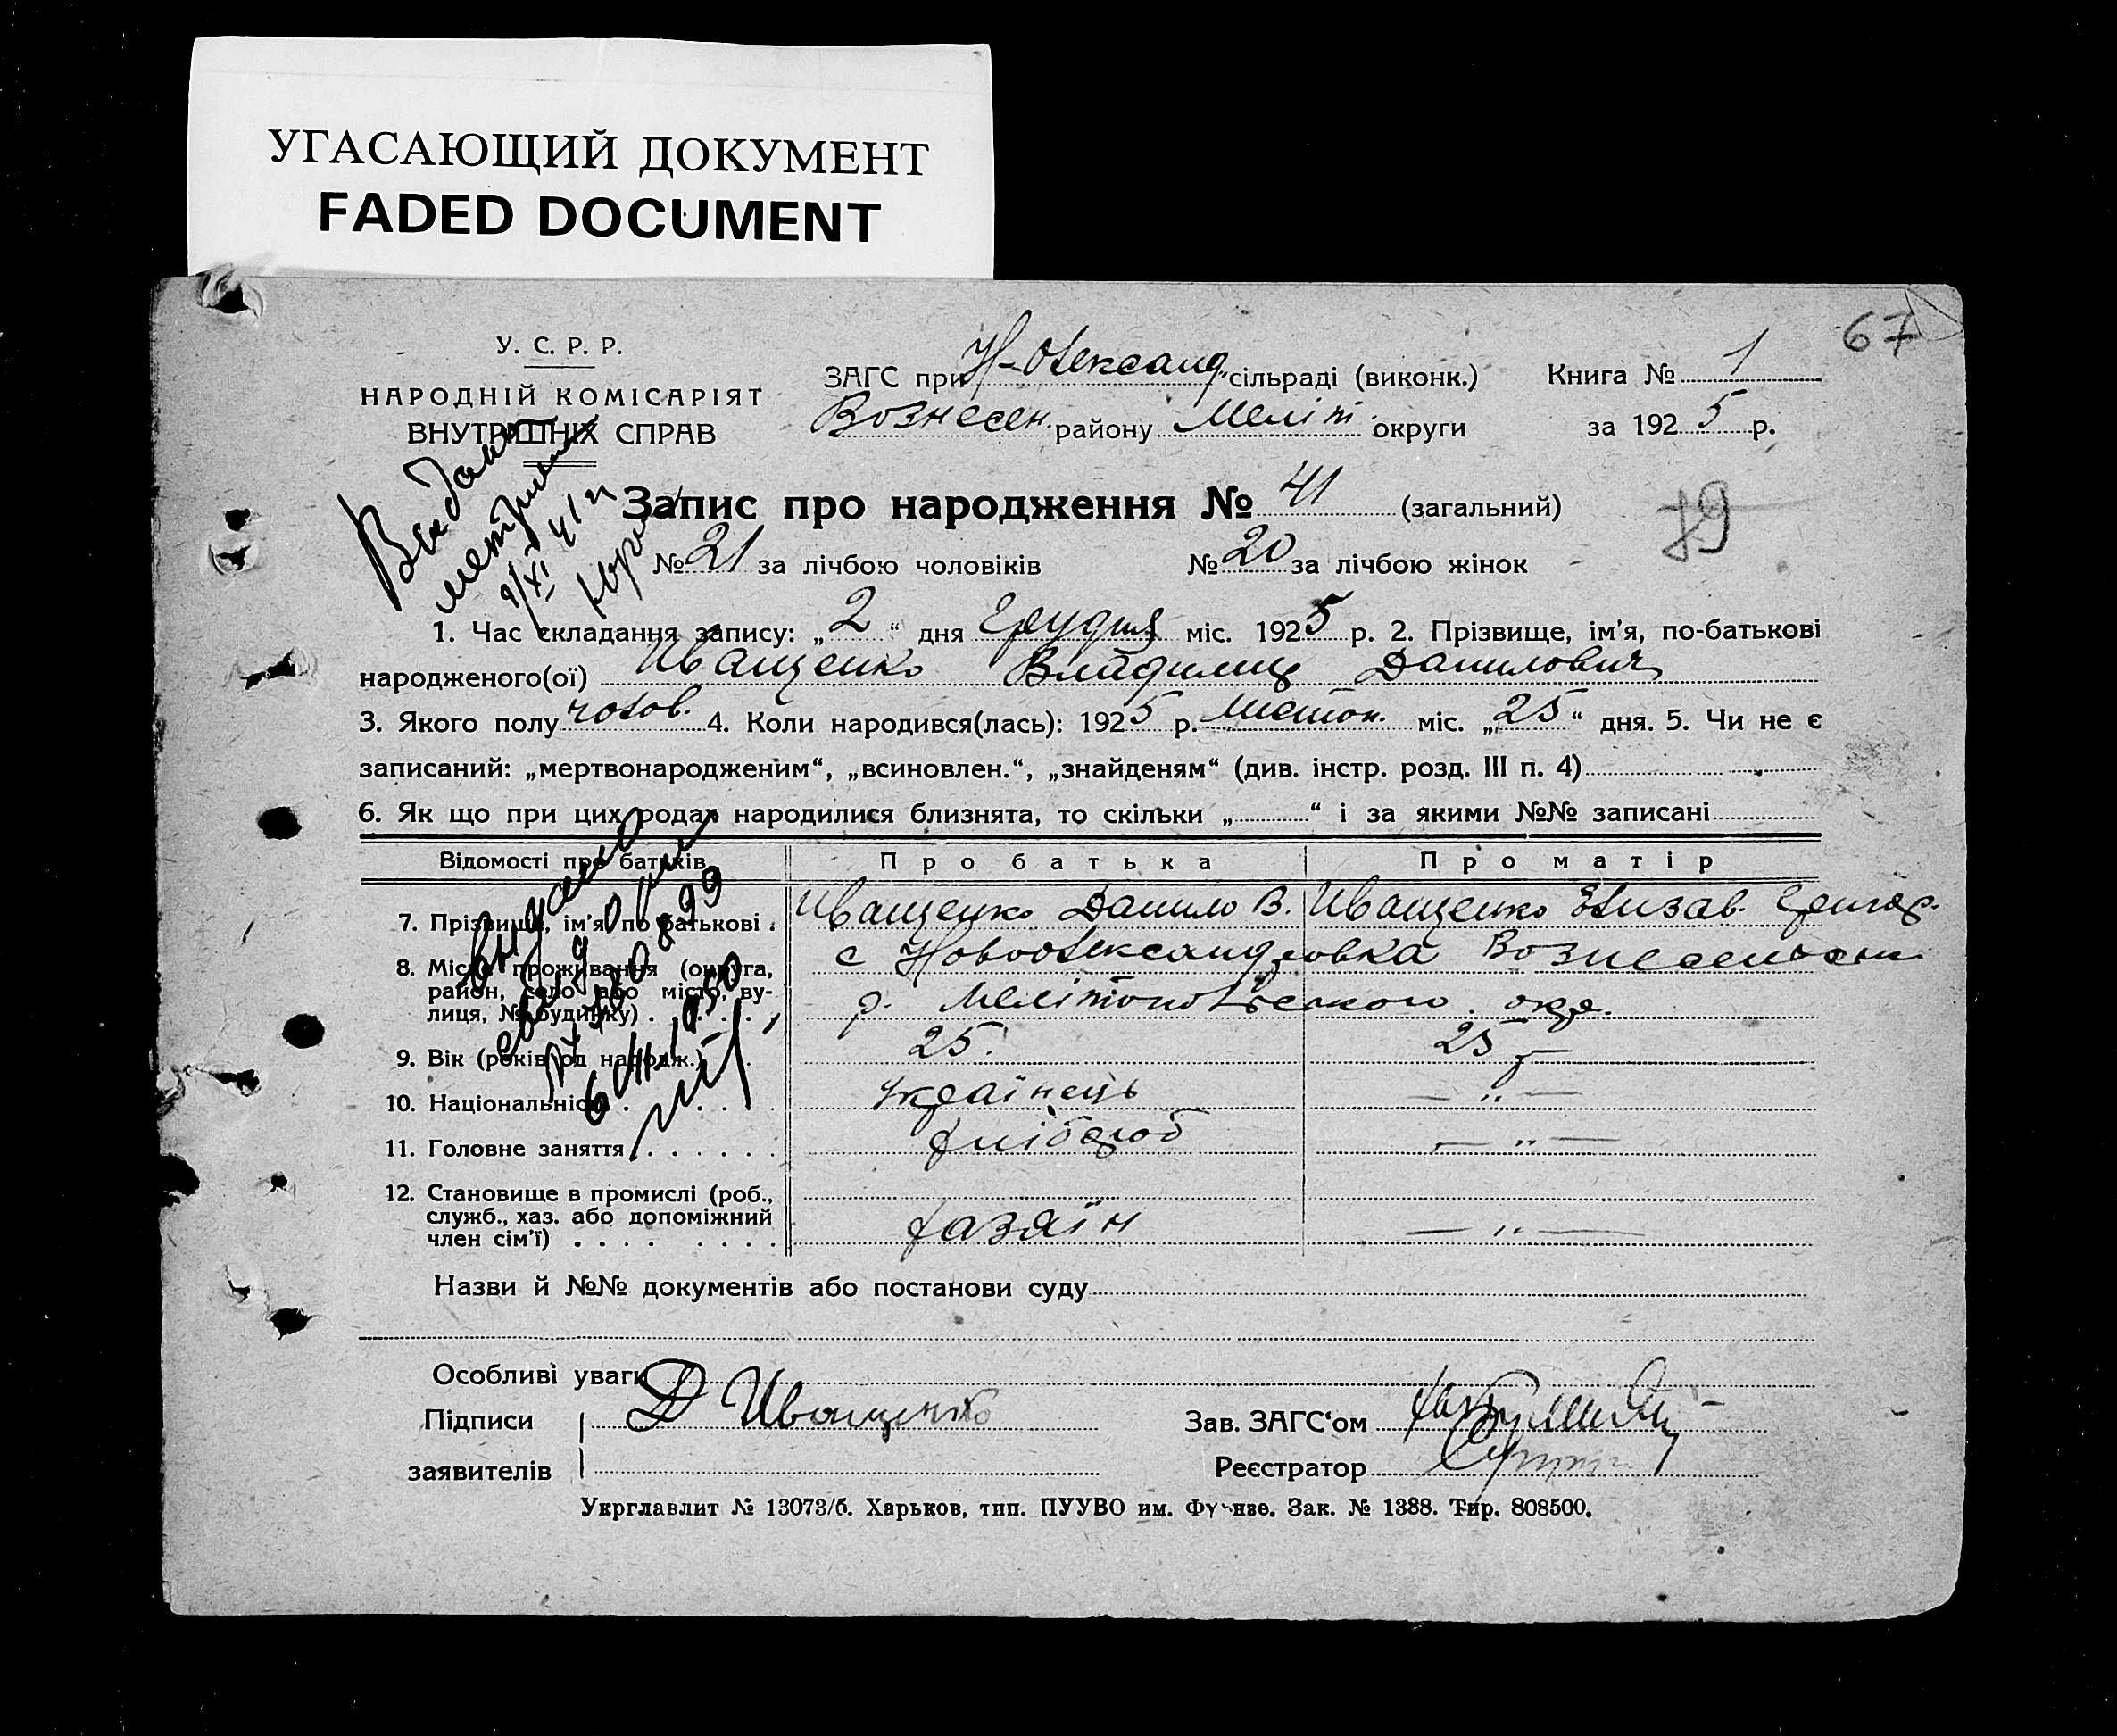 УГАСАЮЩИЙ ДОКУМЕНТ
FADED DOCUMENT
67
У. С. Р. Р.
НАРОДНІЙ КОМІСАРІЯТ
ВНУТРІШНІХ СПРАВ
ЗАГС при Н-Олександ. сільраді (виконк.) Книга № 1
Вознесен. району Меліт. округи за 1925 р.
Запис про народження № 41 (загальний)
79
№ 21 за лічбою чоловіків № 20 за лічбою жінок
1. Час складання запису: „2“ дня Грудня міс. 1925 р. 2. Прізвище, ім'я, по-батькові
народженого(ої) Иващенко Владимир Данилович
3. Якого полу чолов. 4. Коли народився(лась): 1925 р. Листоп. міс. „25“ дня. 5. Чи не є
записаний: „мертвонародженим“, „всиновлен.“, „знайденям“ (див. інстр. розд. III п. 4)
6. Як що при цих родах народилися близнята, то скільки „ “ і за якими №№ записані
Відомості про батьків Про батька Про матір
7. Прізвище, ім'я по батькові . Иващенко Данило В. Иващенко Елизав. Григор.
8. Місце проживання (округа, район, село або місто, ву-лиця, № будинку) . с Новоолександровка Вознесенськ
р. Мелітопольського окр.
9. Вік (років од народж.) . 25. 25
10. Національність . . . . . Українець — „ —
11. Головне заняття . . . . . . хлібороб — „ —
12. Становище в промислі (роб.,
служб., хаз. або допоміжний
член сім'ї) . . . . . . . . хазяїн — „ —
Назви й №№ документів або постанови суду
Особливі уваги
Підписи Д Иващенко Зав. ЗАГС‘ом
заявителів Реєстратор
Укрглавлит № 13073/б. Харьков, тип. ПУУВО им. Фрунзе. Зак. № 1388. Тир. 808500.
Видана
метрика
9/XI 41
выдано
6/III 1950